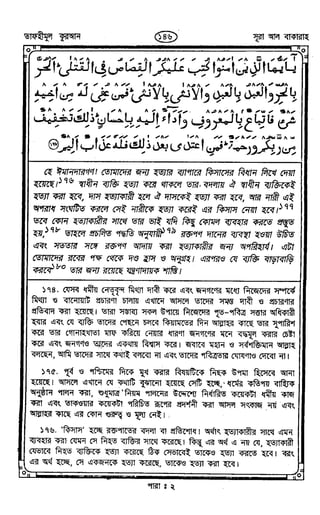 তাফহীমুল কুরআন
১৪৬
সূরা আল বাকারাহ
يٰۤاَيُّهَا الَّذِيْنَ اٰمَنُوْا كُتِبَ عَلَيْكُمُ الْقِصَاصُ فِى الْقَتْلٰى ؕ اَلْحُرُّ
بِالْحُرِّ وَالْعَبْدُ بِالْعَبْدِ وَالْاُنْثٰى بِالْاُنْثٰى ؕ فَمَنْ عُفِىَ لَهٗ مِنْ اَخِيْهِ
شَىْءٌ فَاتِّبَاعٌۢ بِالْمَعْرُوْفِ وَاَدَآءٌ اِلَيْهِ بِاِحْسَانٍ ؕ ذٰلِكَ تَخْفِيْفٌ
مِّنْ رَّبِّكُمْ وَرَحْمَةٌ ؕ فَمَنِ اعْتَدٰى بَعْدَ ذٰلِكَ فَلَهٗ عَذَابٌ اَلِيْمٌ
হে ঈমানদারগণ! তোমাদের জন্য হত্যার ব্যাপারে কিসাসের বিধান লিখে দেয়া
হয়েছে।১৭৬ স্বাধীন ব্যক্তি হত্যা করে থাকলে তার বদলায় ঐ স্বাধীন ব্যক্তিকেই
হত্যা করা হবে, দাস হত্যাকারী হলে ঐ দাসকেই হত্যা করা হবে, আর নারী এই
অপরাধ সংঘটিত করলে সেই নারীকে হত্যা করেই এর কিসাস নেয়া হবে।১৭৭
তবে কোন হত্যাকারীর সাথে তার ভাই যদি কিছু কোমল ব্যবহার করতে প্রস্তুত
হয়,১৭৮ তাহলে প্রচলিত পদ্ধতি অনুযায়ী১৭৯ রক্তপণ দানের ব্যবস্থা হওয়া উচিত
এবং সততার সঙ্গে রক্তপণ আদায় করা হত্যাকারীর জন্য অপরিহার্য। এটা
তোমাদের রবের পক্ষ থেকে দণ্ড হ্রাস ও অনুগ্রহ। এরপরও যে ব্যক্তি বাড়াবাড়ি
করবে১৮০ তার জন্য রয়েছে যন্ত্রণাদায়ক শাস্তি।
১৭৪. যেসব ধর্মীয় নেতৃবৃন্দ মিথ্যা দাবী করে এবং জনগণের মধ্যে নিজেদের সম্পর্কে
মিথ্যা ও বানোয়াট প্রচারণা চালায় এখানে আসলে তাদের সমস্ত দাবী ও প্রচারণার
প্রতিবাদ করা হয়েছে। তারা সম্ভাব্য সকল উপায়ে নিজেদের পূত-পবিত্র সত্তার অধিকারী
হবার এবং যে ব্যক্তি তাদের পেছনে চলবে কিয়ামতের দিন আল্লাহর কাছে তার সুপারিশ
করে তার গোনাহখাতা মাফ করিয়ে নেয়ার ধারণা জনগণের মনে বদ্ধমূল করার চেষ্টা
করে এবং জনগণও তাদের একথায় বিশ্বাস করে। জবাবে মহান ও সর্বশক্তিমান আল্লাহ
বলছেন, আমি তাদের সাথে কথাই বলবো না এবং তাদের পবিত্রতার ঘোষণাও দেবো না।
১৭৫. পূর্ব ও পশ্চিমের দিকে মুখ করার বিষয়টিকে নিছক উপমা হিসেবে আনা
হয়েছে। আসলে এখানে যে কথাটি বুঝানো হয়েছে সেটি হচ্ছে, ধর্মের কতিপয় বাহ্যিক
অনুষ্ঠান পালন করা, শুধুমাত্র নিয়ম পালনের উদ্দেশ্যে নির্ধারিত কয়েকটা ধর্মীয় কাজ
করা এবং তাকওয়ার কয়েকটা পরিচিত রূপের প্রদর্শনী করা আসল সৎকাজ নয় এবং
আল্লাহর কাছে এর কোন গুরুত্ব ও মূল্য নেই।
১৭৬. 'কিসাস' হচ্ছে রক্তপাতের বদলা বা প্রতিশোধ। অর্থাৎ হত্যাকারীর সাথে এমন
ব্যবহার করা যেমন সে নিহত ব্যক্তির সাথে করেছে। কিন্তু এর অর্থ এ নয় যে, হত্যাকারী
যেভাবে নিহত ব্যক্তিকে হত্যা করেছে ঠিক সেভাবেই তাকেও হত্যা করতে হবে। বরং
এর অর্থ হচ্ছে, সে একজনকে হত্যা করেছে, তাকেও হত্যা করা হবে।
পারা : ২